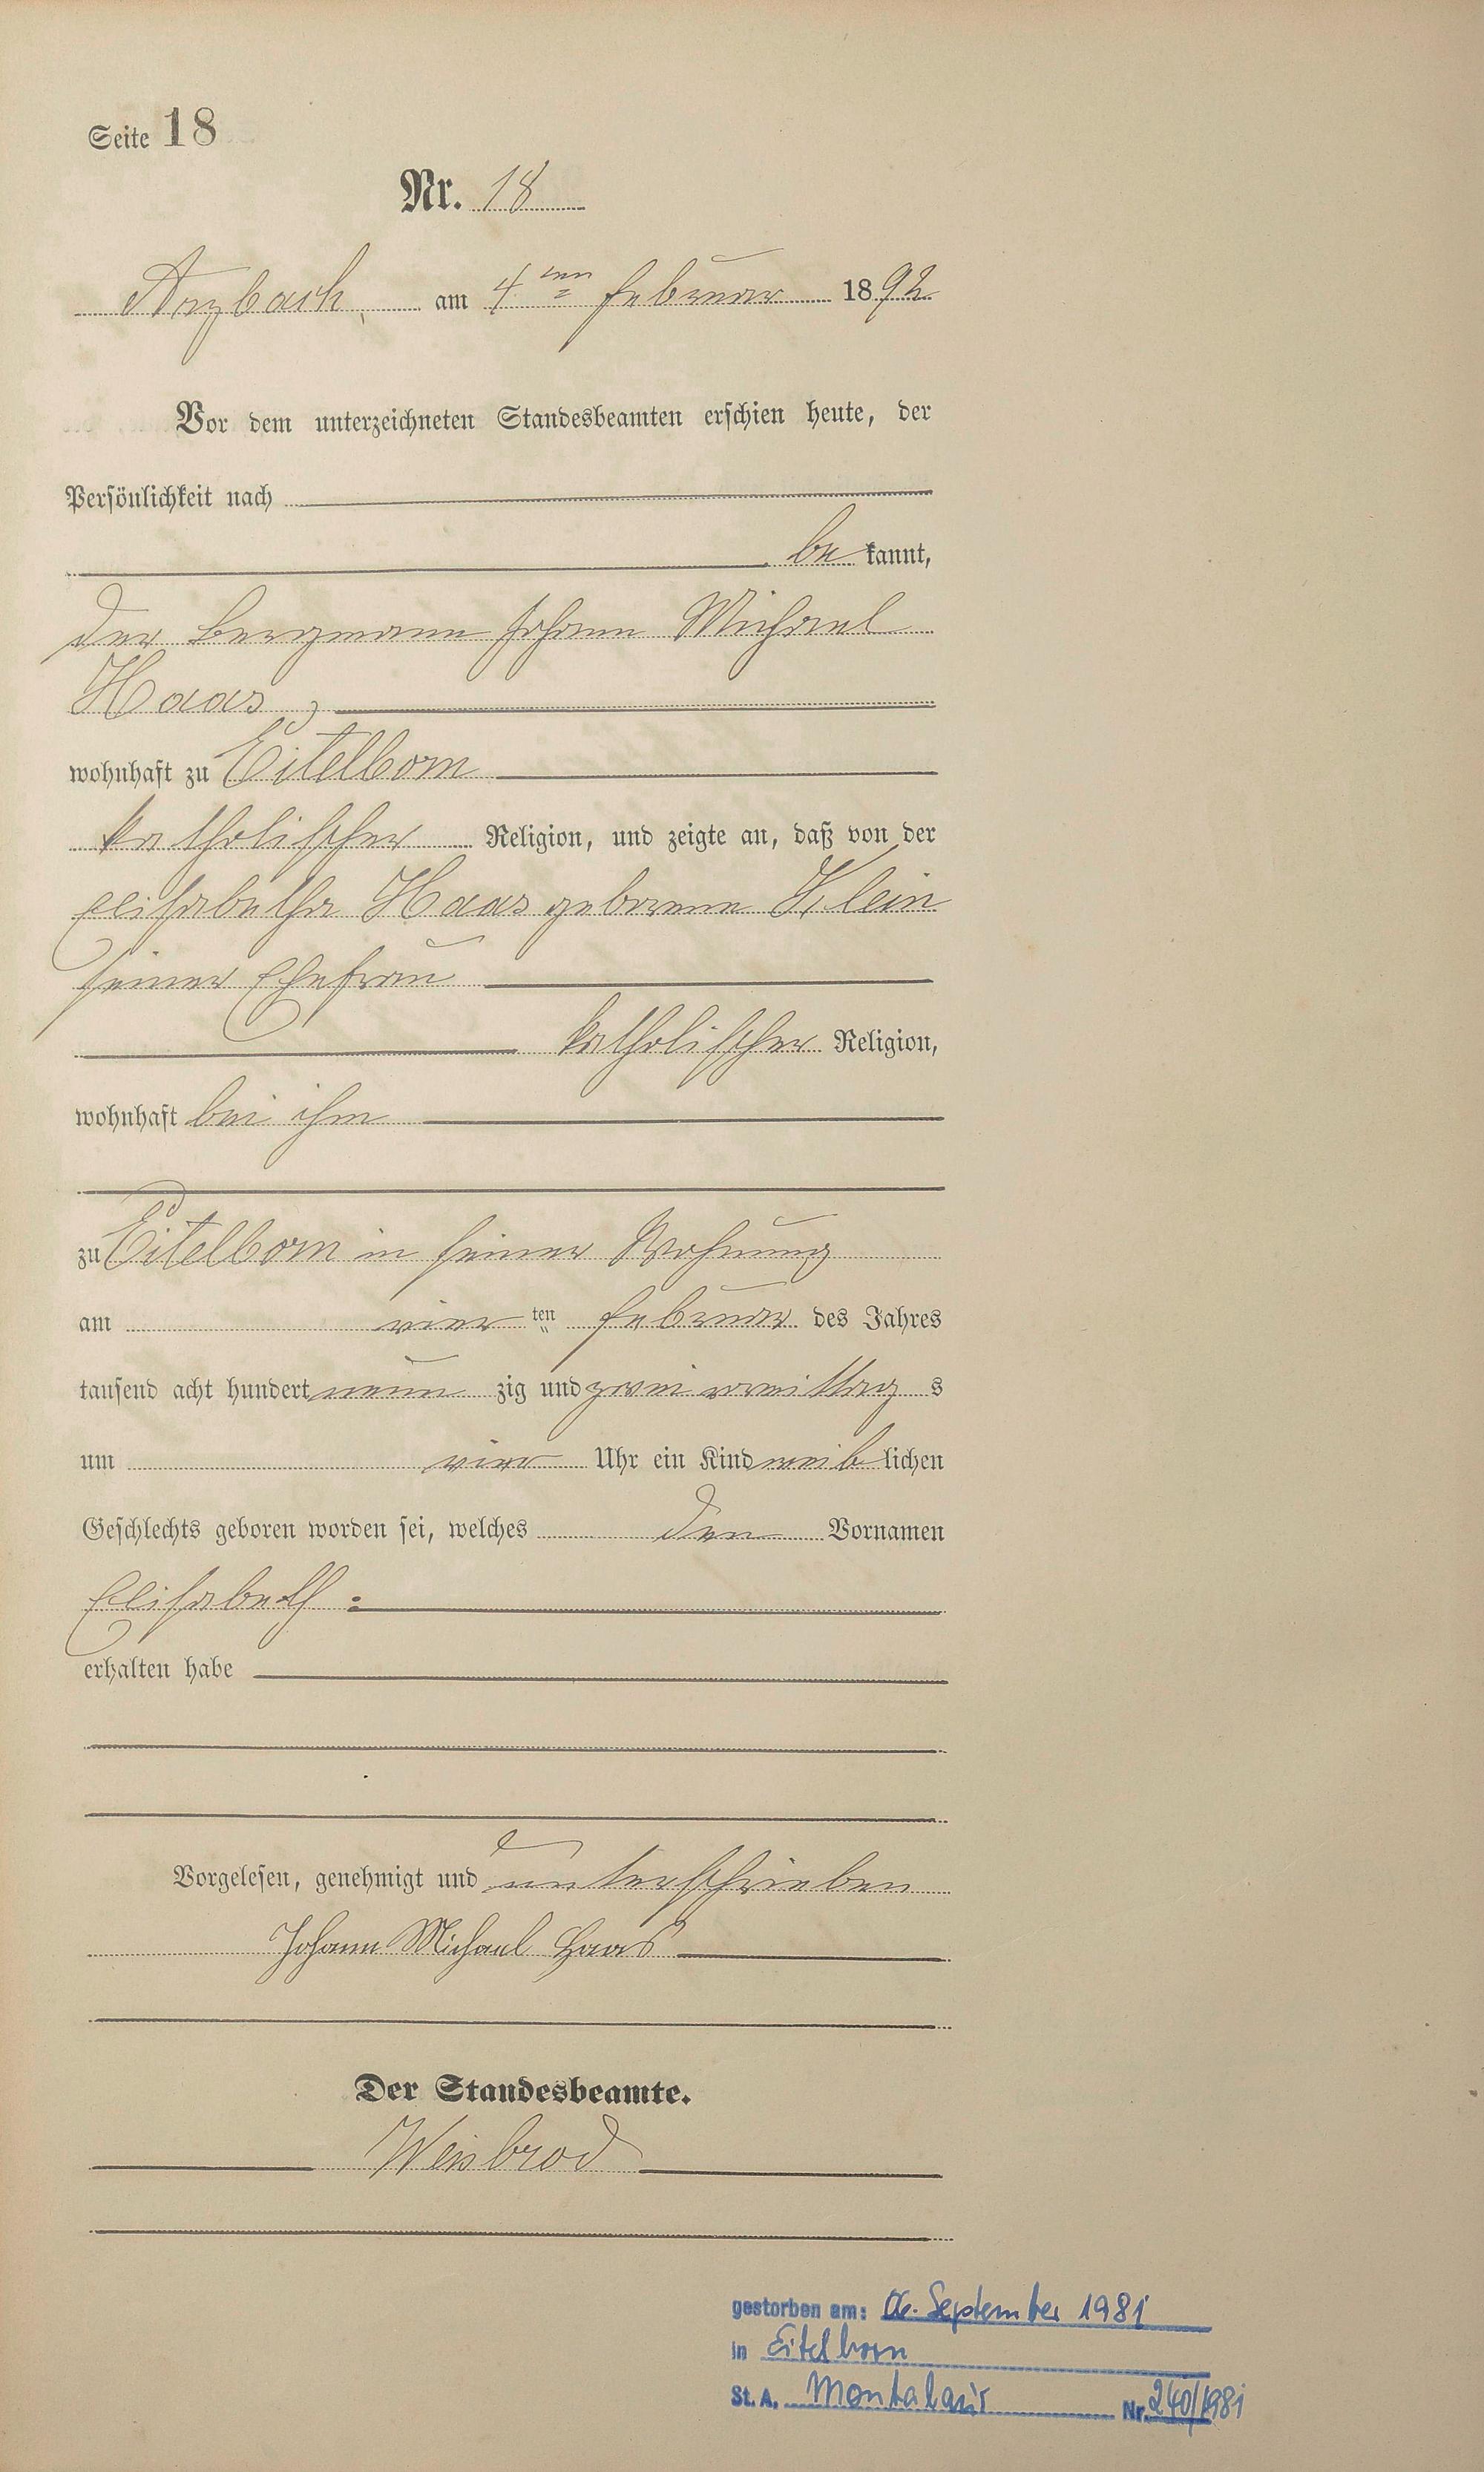 Seite 18
Nr. 18
Arzbach, am 4ten Februar 1892
Vor dem unterzeichneten Standesbeamten erschien heute, der
Persönlichkeit nach
bekannt,
der Bergmann Johann Michael
Haas,
wohnhaft zu Eitelborn
katholischer Religion, und zeigte an, daß von der
Elisabetha Haas geborene Klein
seiner Ehefrau
katholischer Religion,
wohnhaft bei ihm
zu Eitelborn in seiner Wohnung
am vier ten Februar des Jahres
tausend acht hundert neun zig und zwei vormittags
um vier Uhr ein Kind weiblichen
Geschlechts geboren worden sei, welches den Vornamen
Elisabeth
erhalten habe
Vorgelesen, genehmigt und unterschrieben
Johann Michael Haas
Der Standesbeamte.
Weisbrod
gestorben am: 06. September 1981
in Eitelborn
St. A. Montabaur Nr. 240/1981